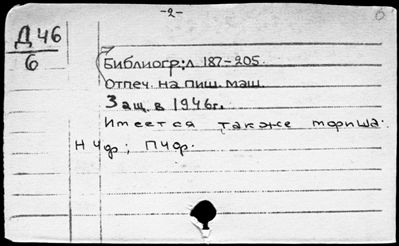 -2-
Д 46
6
Библиогр: л 187-205.
Отпеч. на пиш. маш.
Защ. в 1946г.
Имеется также мфиша:
НЧф; ПЧф.